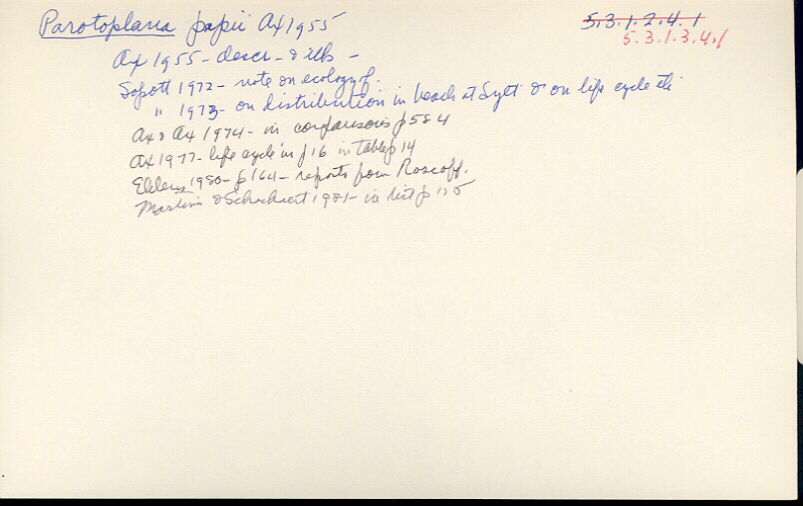 Parotoplana papii Ax 1955
5.3.1.2.4.1
5.3.1.3.4.1
Ax 1955 - descr - & ills -
Sopott 1972 - note on ecology of.
" 1973 - on distribution in beach at Sylt & on life cycle etc
Ax & Ax 1974 - in comparisons p 584
Ax 1977 - life cycle in f 16 in table p 14
Ehlers 1980 - p 164 - reports from Roscoff.
Martens & Schockaert 1981 - in list p